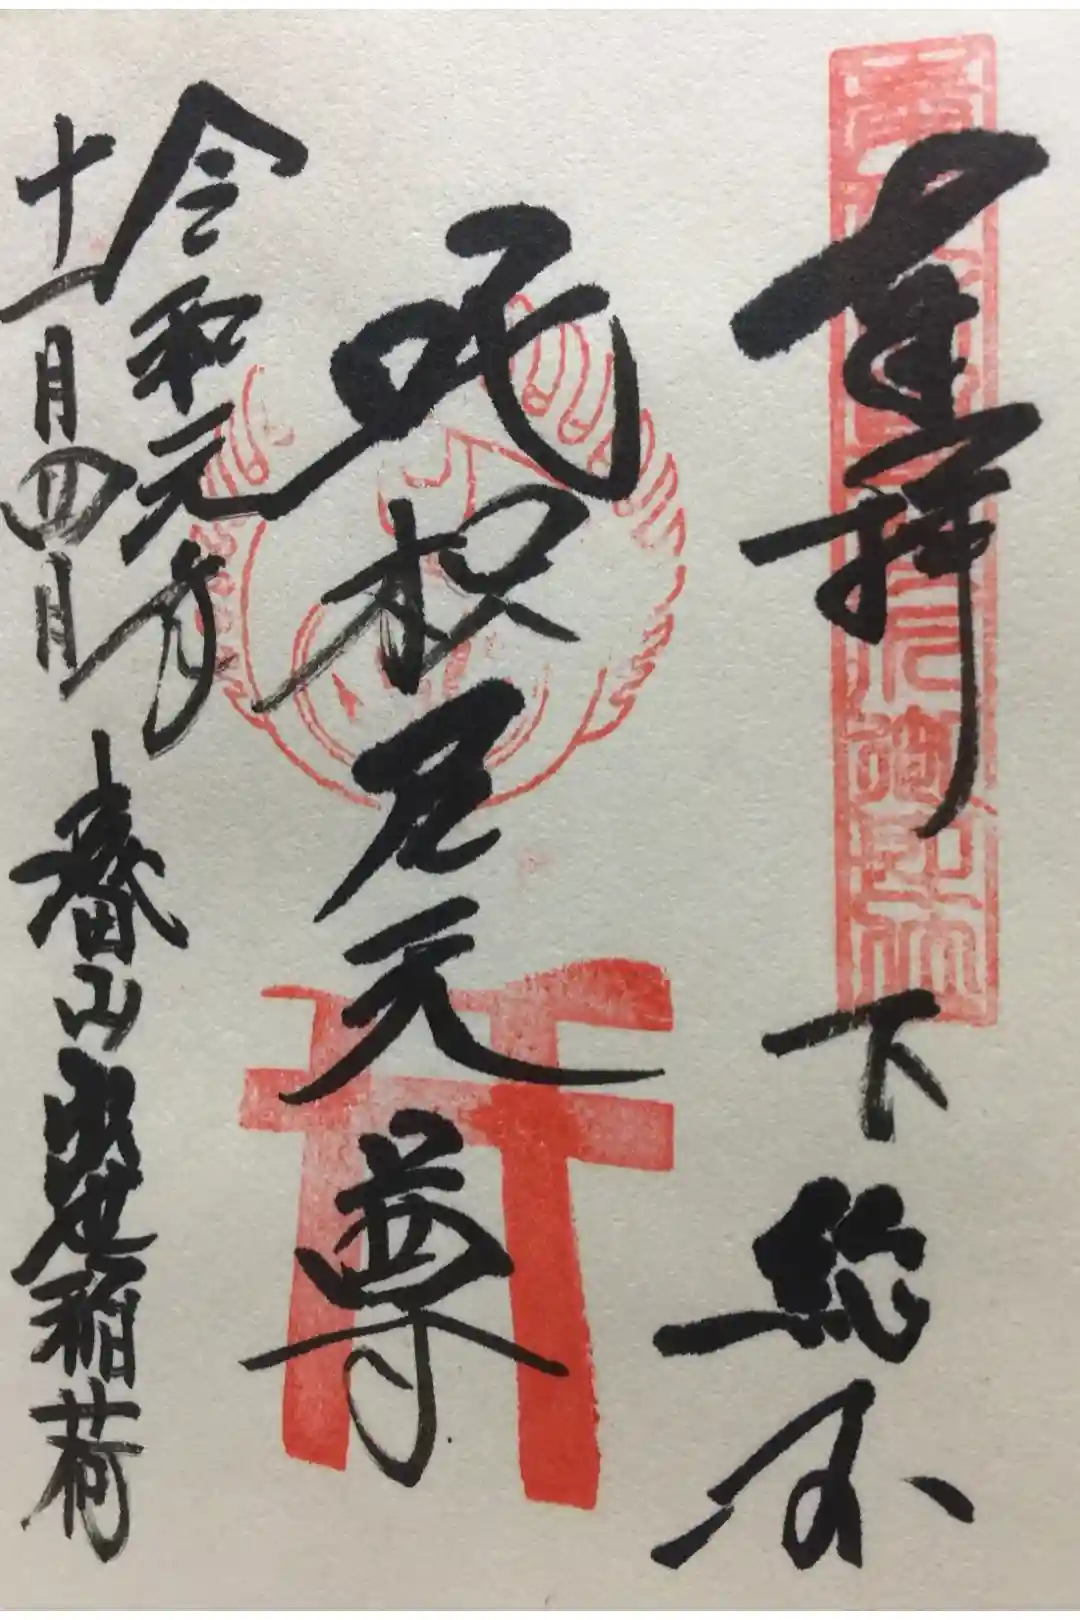 奉拝 下総国
吒枳尼天尊
令和元年
十一月四日 春山出世稲荷